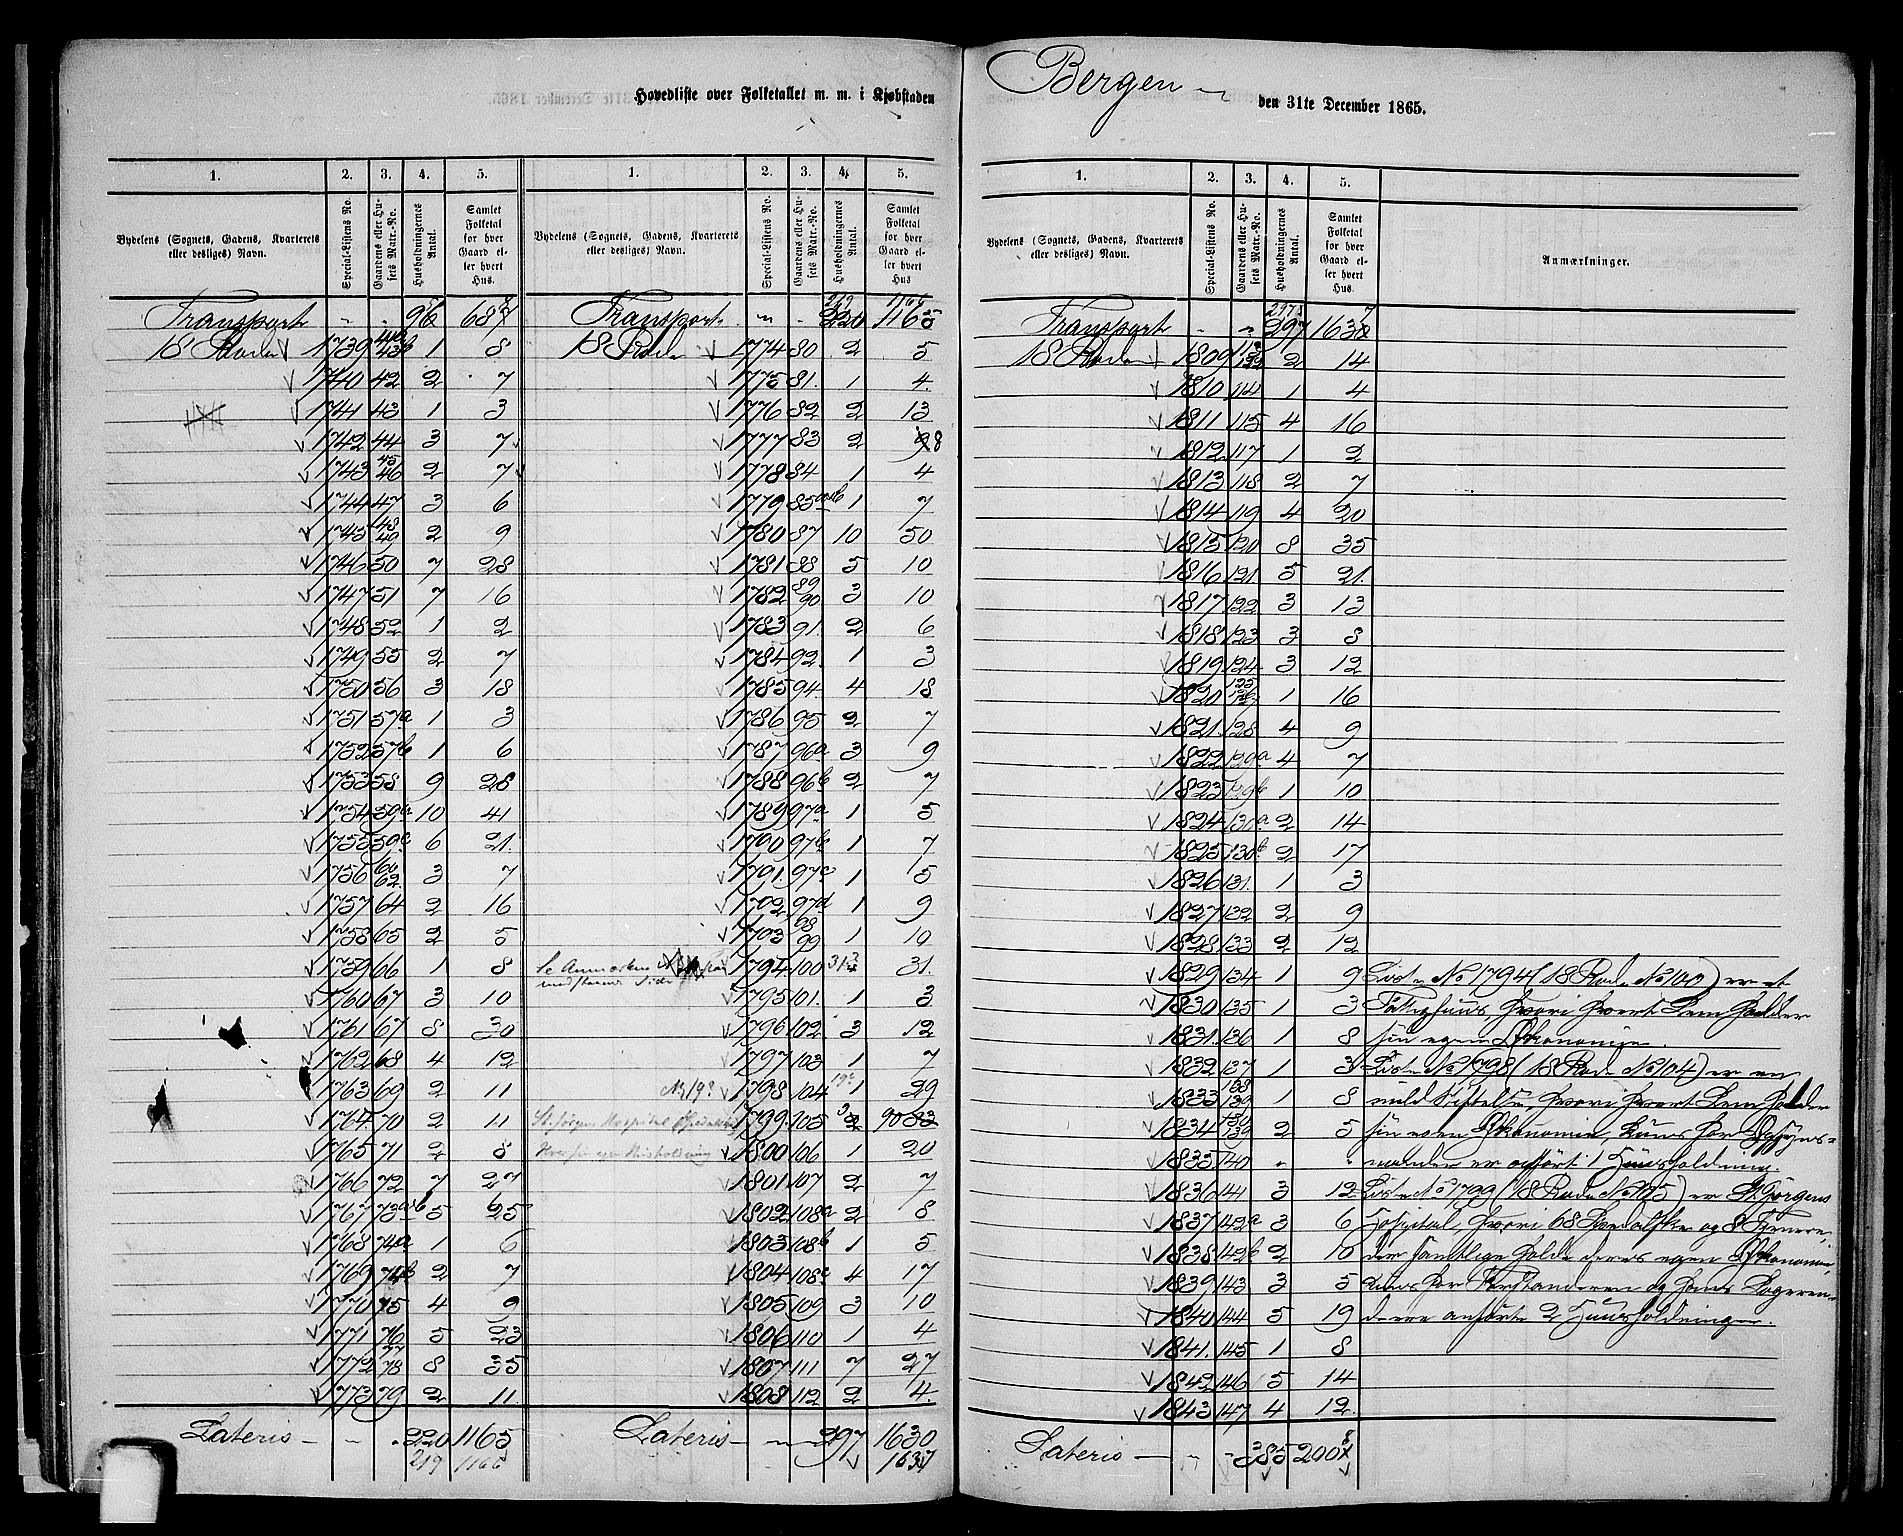 Hovedliste over Folketallet m. m. i Kjøbstaden
Bergen
den 31te December 1865.
1. 2. 3. 4. 5. 1. 2. 3. 4. 5.
Bydelens (Sognets, Gadens, Kvarterets eller desliges) Navn.
Special-Listens No.
Gaardens eller Husets Matr.-No.
Husholdningernes Antal.
Samlet Folketal for hver Gaard eller hvert Hus.
Bydelens (Sognets, Gadens, Kvarterets eller desliges) Navn.
Special-Listens No.
Gaardens eller Husets Matr.-No.
Husholdningernes Antal.
Samlet Folketal for hver Gaard eller hvert Hus.
Transport
18 Rode 1739 1 8
1740 42 2 7
1741 43 1 3
1742 44 3 7
1743 45 46 2 7
1744 47 3 6
1745 48 49 2 9
1746 50 7 28
1747 51 7 16
1748 52 1 2
1749 55 2 7
1750 56 3 18
1751 57a 1 3
1752 57b 1 6
1753 58 9 28
1754 59a 10 41
1755 59c 6 21
1756 62 3 7
1757 64 2 16
1758 65 2 5
1759 66 1 8
1760 67 3 10
1761 67 8 30
1762 68 4 12
1763 69 2 11
1764 70 2 11
1765 71 2 8
1766 72 7 27
1767 73ab 5 25
1768 74a 1 6
1769 74b 2 7
1770 75 4 9
1771 76 5 23
1772 77 78 8 35
1773 79 2 11
Lateris 220 1165
219 1166
Transport 219 220 1166 1165
18 Rode 1774 80 2 5
1775 81 1 4
1776 82 2 13
1777 83 2 8
1778 84 1 4
1779 85 1 7
1780 87 10 50
1781 88 5 10
1782 89 90 3 10
1783 91 2 6
1784 92 1 3
1785 94 4 18
1786 95 2 7
1787 96a 3 9
1788 96b 2 7
1789 97a 1 5
1790 97b 1 7
1791 97c 1 5
1792 97d 1 9
1793 98 99 1 10
1794 100 31
1795 101 1 3
1796 102 3 12
1797 103 1 7
1798 104 1 29
St. Jørgens Hospital 1799 105
1800 106 1 20
1801 107 2 7
1802 108a 2 8
1803 108b 1 5
1804 108c 4 17
1805 109 3 10
1806 110 1 4
1807 111 7 27
1808 112 2 4
Lateris 297 1630
1637
1. 2. 3. 4. 5.
Bydelens (Sognets, Gadens, Kvarterets eller desliges) Navn.
Special-Listens No.
Gaardens eller Husets Matr.-No.
Husholdningernes Antal.
Samlet Folketal for hver Gaard eller hvert Hus.
Anmærkninger.
Transport 297
18 Rode 1809 2 14
1810 114 1 4
1811 115 4 16
1812 117 1 2
1813 118 2 7
1814 119 4 20
1815 120 8 35
1816 121 5 21
1817 122 3 13
1818 123 3 8
1819 124 3 12
1820 1 16
1821 128 4 9
1822 129a 4 7
1823 129b 1 10
1824 130a 2 14
1825 130b 2 17
1826 131 1 3
1827 132 2 9
1828 133 2 12
1829 134 1 9 Liste No 1794 (18 Rode No 100) er et
1830 135 1 3 Fattighuus, hvori hvert Lem holder
1831 136 1 8 sin egen Økonomie.
1832 137 1 3 Liste No 1798 (18 Rode No 104) er en
1833 1 8 mild Stiftelse, hvori hvert Lem holder
1834 2 5 sin egen Økonomie, kuns for Opsyns-
1835 140 manden er opført 1 Huusholdning.
1836 141 3 12 Liste No 1799 (18 Rode No 105) er St Jørgens
1837 142a 3 6 Hospital, hvori 68 Spedalske og 8 Tjenere,
1838 142b 2 10 der samtlige holde deres egen Økonomi,
1839 143 3 5 kuns for Forstanderen og hans Logeren-
1840 144 5 19 derre anførte 2 Huusholdninger.
1841 145 1 8
1842 146 5 14
1843 147 4 12
Lateris 385